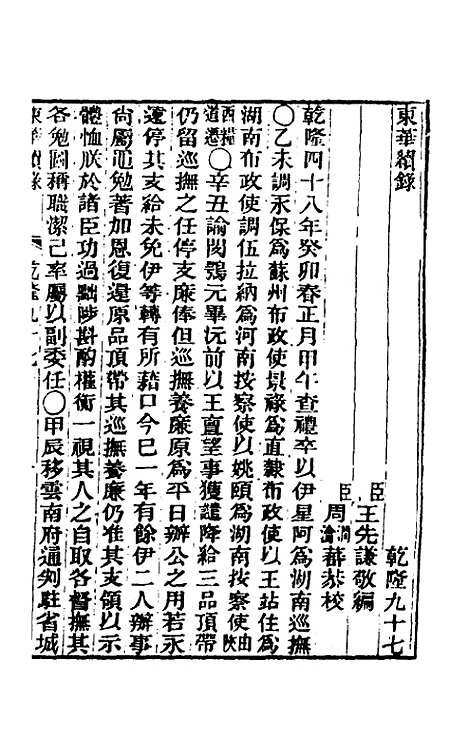 東華續錄
乾隆九十七
臣王先謙敬編
臣周潤蕃周瀹蕃恭校
乾隆四十八年癸卯春正月甲午查禮卒以伊星阿爲湖南巡撫
〇乙未調永保爲蘇州布政使景祿爲直隸布政使以王站住爲
湖南布政使調伍拉納爲河南按察使以姚頤爲湖南按察使由陝
西糧道遷〇辛丑諭閔鶚元畢沅前以王亶望事獲譴降給三品頂帶
仍留巡撫之任停支廉俸但巡撫養廉原爲平日辦公之用若永
遠停其支給未免伊等轉有所藉口今已一年有餘伊二人辦事
尙屬黽勉著加恩復還原品頂帶其巡撫養廉仍准其支領以示
體恤朕於諸臣功過黜陟斟酌權衡一視其人之自取各督撫其
各勉圖稱職潔己率屬以副委任〇甲辰移雲南府通判駐省城
東華續錄 乾隆九十七